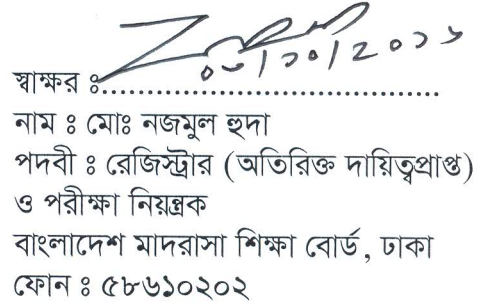 স্বাক্ষর ঃ........................................
নাম ঃ মোঃ নজমুল হুদা
পদবী ঃ রেজিস্ট্রার (অতিরিক্ত দায়িত্বপ্রাপ্ত)
ও পরীক্ষা নিয়ন্ত্রক
বাংলাদেশ মাদরাসা শিক্ষা বোর্ড, ঢাকা
ফোন ঃ ৫৮৬১০২০২